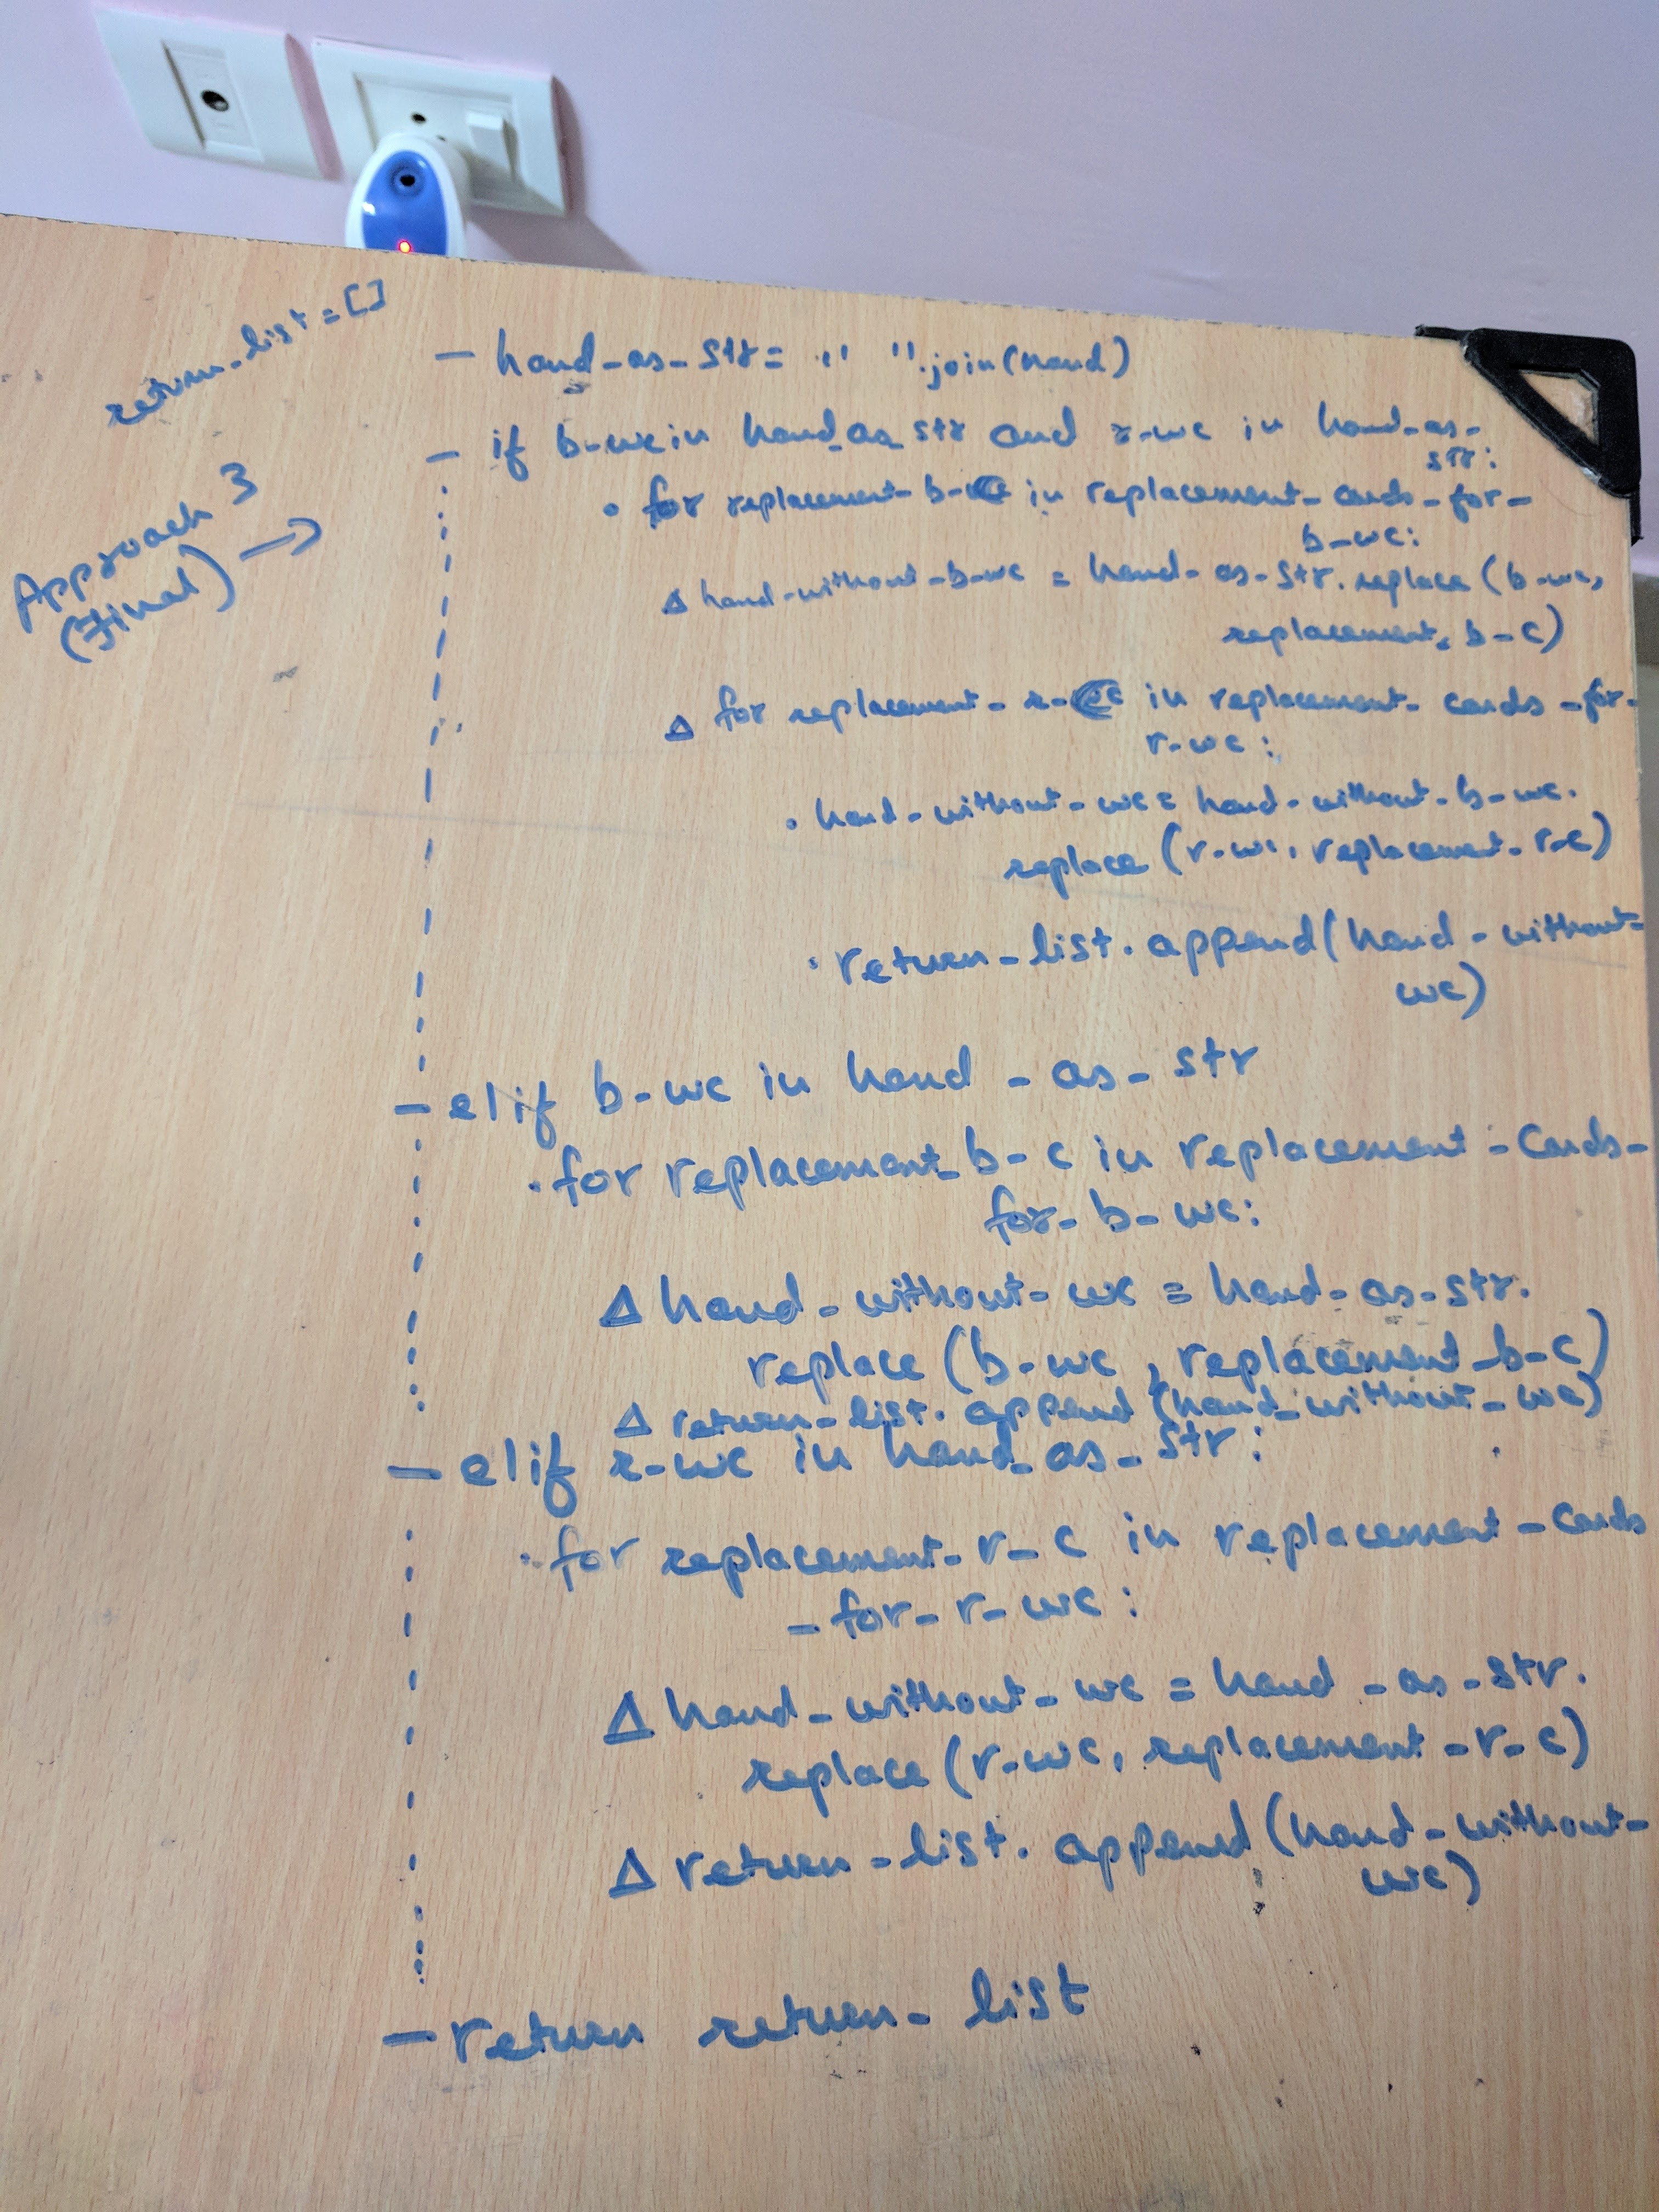 return_list = []
Approach 3
(Final) →
- hand_as_str = " ".join(hand)
- if b-wc in hand_as_str and r-wc in hand-as-
str:
• for replacement-b-c in replacement-cards-for-
b-wc:
Δ hand-without-b-wc = hand-as-str.replace(b-wc,
replacement_b-c)
Δ for replacement-r-c in replacement-cards-for-
r-wc:
• hand-without-wc = hand-without-b-wc.
replace(r-wc, replacement-r-c)
• return-list.append(hand-without-
wc)
- elif b-wc in hand-as-str
• for replacement_b-c in replacement-cards-
for-b-wc:
Δ hand-without-wc = hand-as-str.
replace(b-wc, replacement_b-c)
Δ return-list.append(hand_without-wc)
- elif r-wc in hand_as-str:
• for replacement-r-c in replacement-cards
-for-r-wc:
Δ hand-without-wc = hand-as-str.
replace(r-wc, replacement-r-c)
Δ return-list.append(hand-without-
wc)
- return return-list